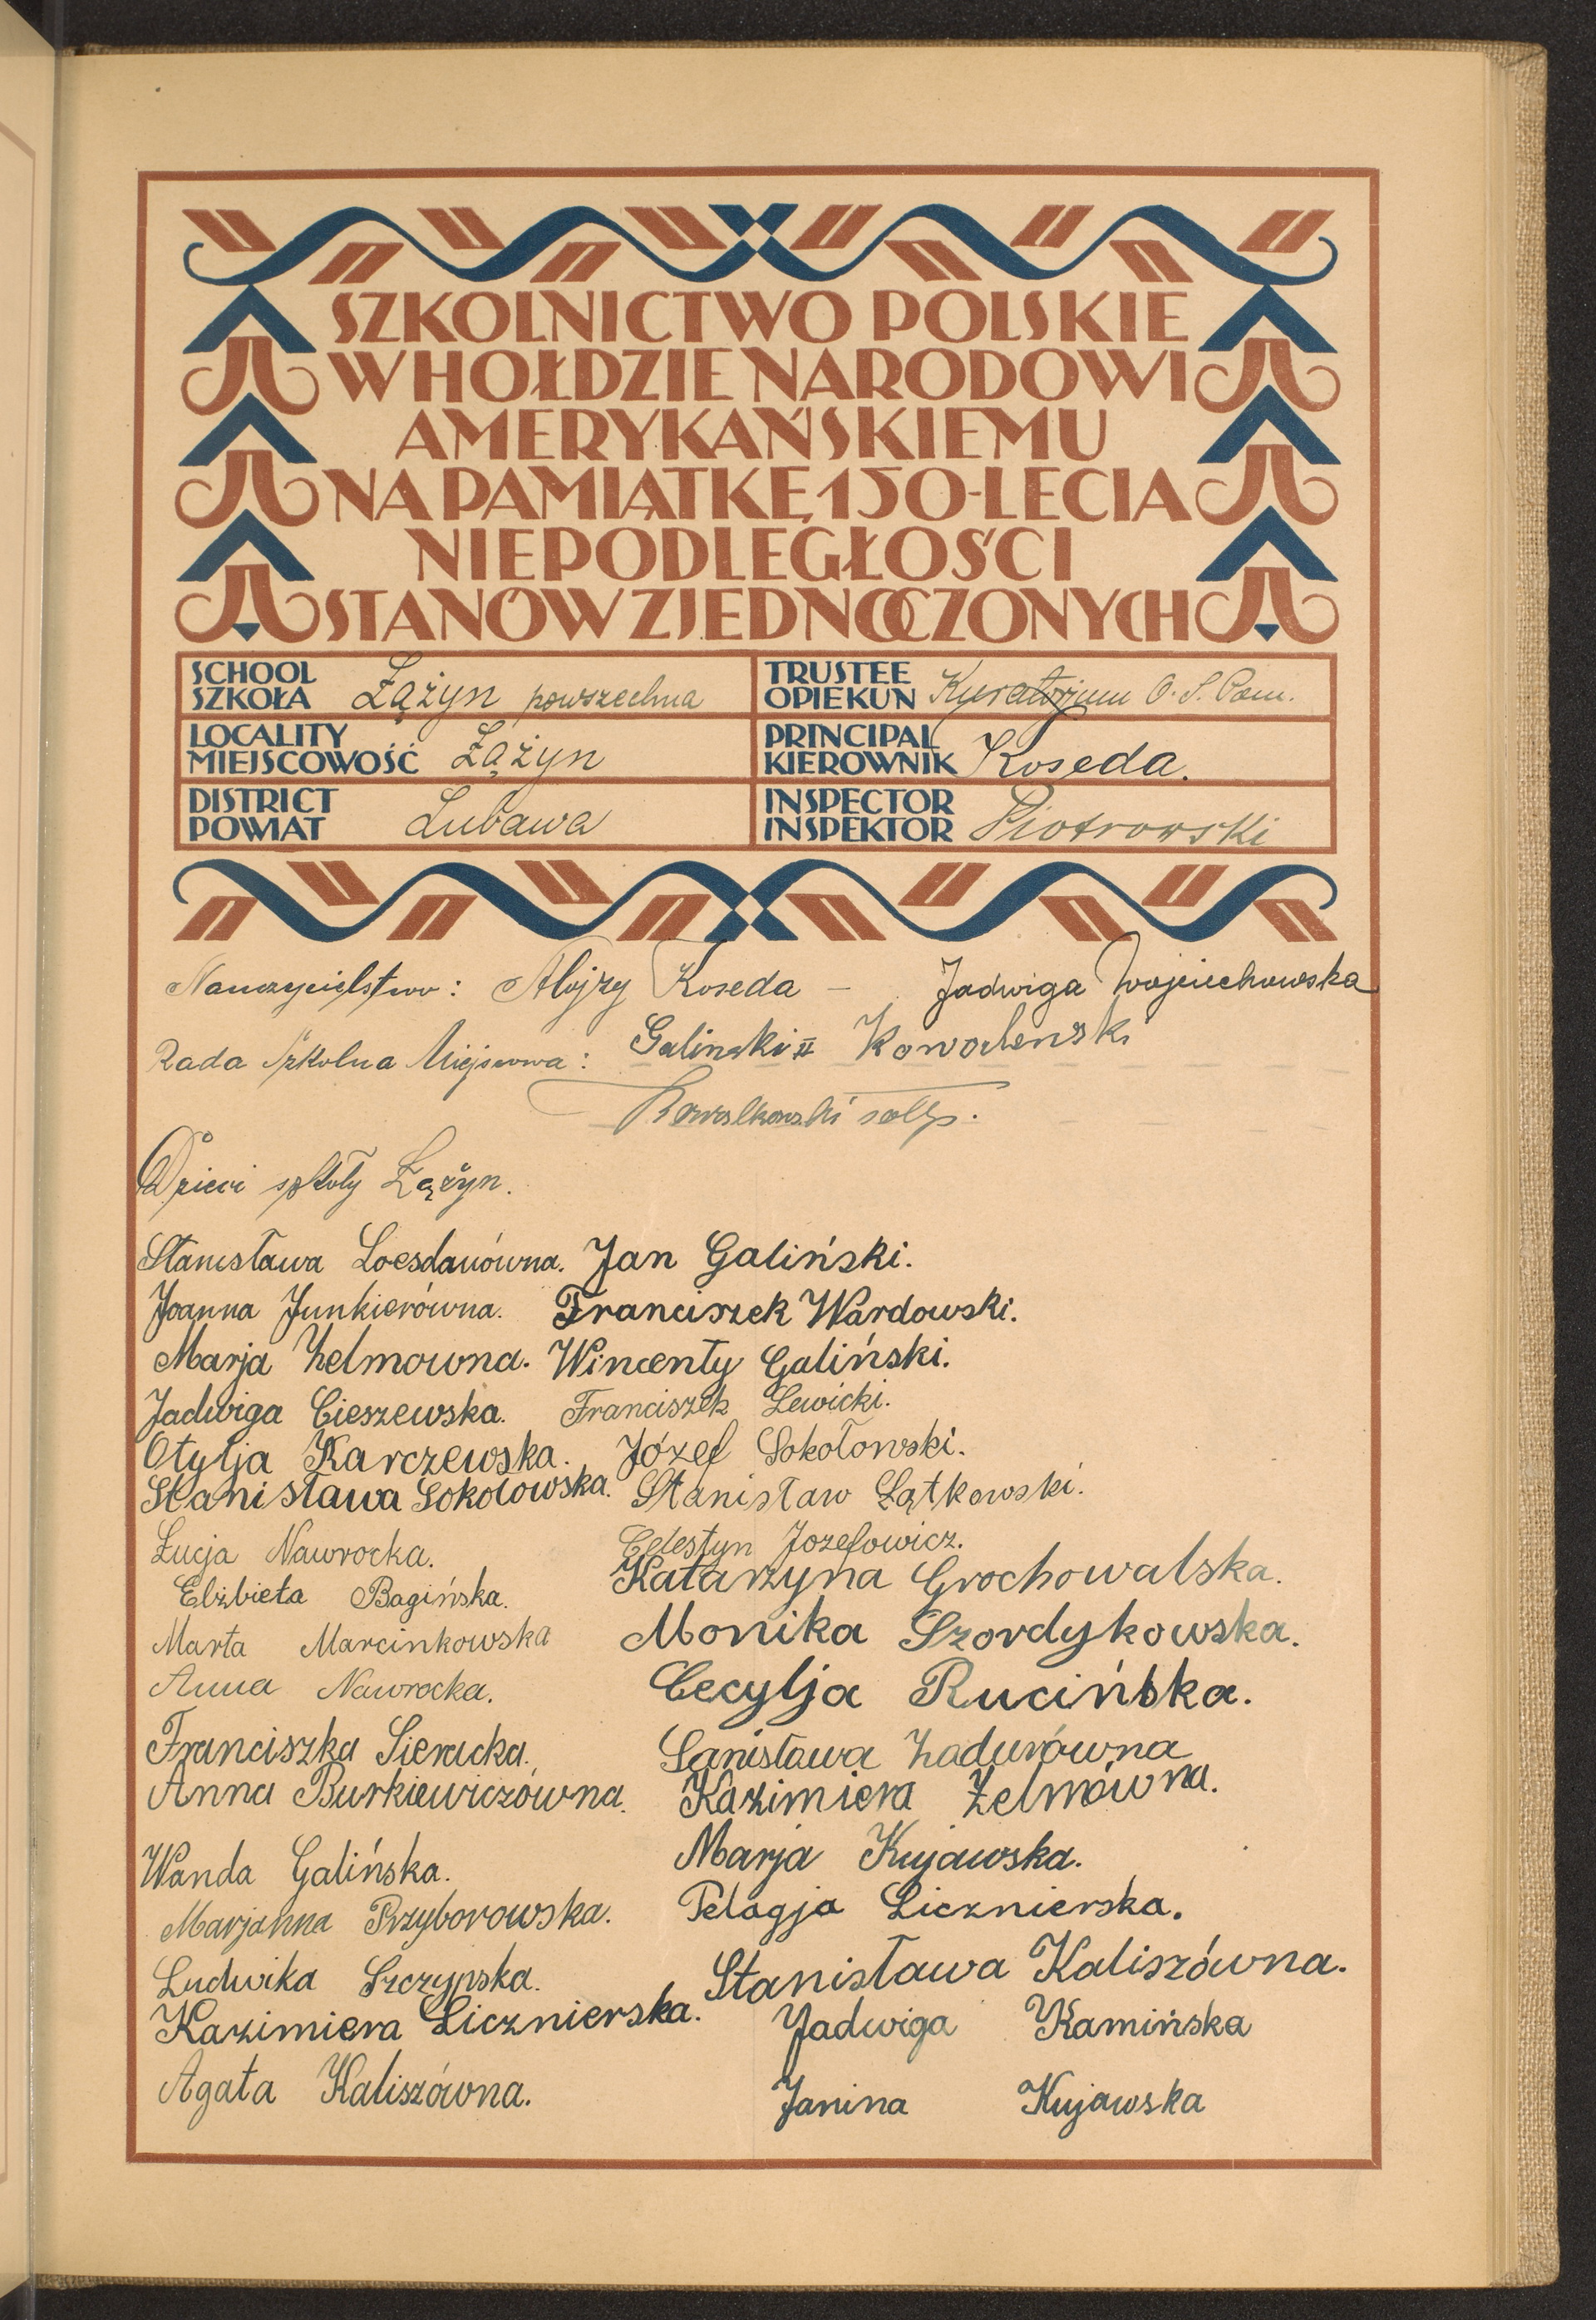 SZKOLNICTWO POLSKIE
W HOŁDZIE NARODOWI
AMERYKAŃSKIEMU
NA PAMIĄTKĘ 150-LECIA
NIEPODLEGŁOŚCI
STANÓW ZJEDNOCZONYCH
SCHOOL
SZKOŁA Łążyn powszechna
TRUSTEE
OPIEKUN Kuratorjum O. S. Pom.
LOCALITY
MIEJSCOWOŚĆ Łążyn
PRINCIPAL
KIEROWNIK Koseda.
DISTRICT
POWIAT Lubawa
INSPECTOR
INSPEKTOR Piotrowski
Nauczycielstwo: Alojzy Koseda – Jadwiga Wojciechowska
Rada Szkolna Miejscowa: Galinski II
Kowalkowski sołtys.
Dzieci szkoły Łążyn.
Stanisława Loesdauówna. Jan Galiński.
Joanna Junkierówna. Franciszek Wardowski.
Marja Zelmowna. Wincenty Galiński.
Jadwiga Cieszewska. Franciszek Lewicki.
Otylja Karczewska. Józef Sokołowski.
Stanisława Sokołowska. Stanisław Łątkowski.
Łucja Nawrocka. Celestyn Jozefowicz.
Elżbieta Bagińska. Katarzyna Grochowalska.
Marta Marcinkowska Monika Szordykowska.
Anna Nawrocka. Cecylja Rucińska.
Franciszka Sieracka. Sanisława Zadurówna
Anna Burkiewiczówna. Kazimiera Zelmówna.
Wanda Galińska. Marja Kujawska.
Marjanna Przyborowska. Pelagja Licznierska.
Ludwika Szczypska. Stanisława Kaliszówna.
Kazimiera Licznierska. Jadwiga Kamińska
Agata Kaliszówna. Janina Kujawska